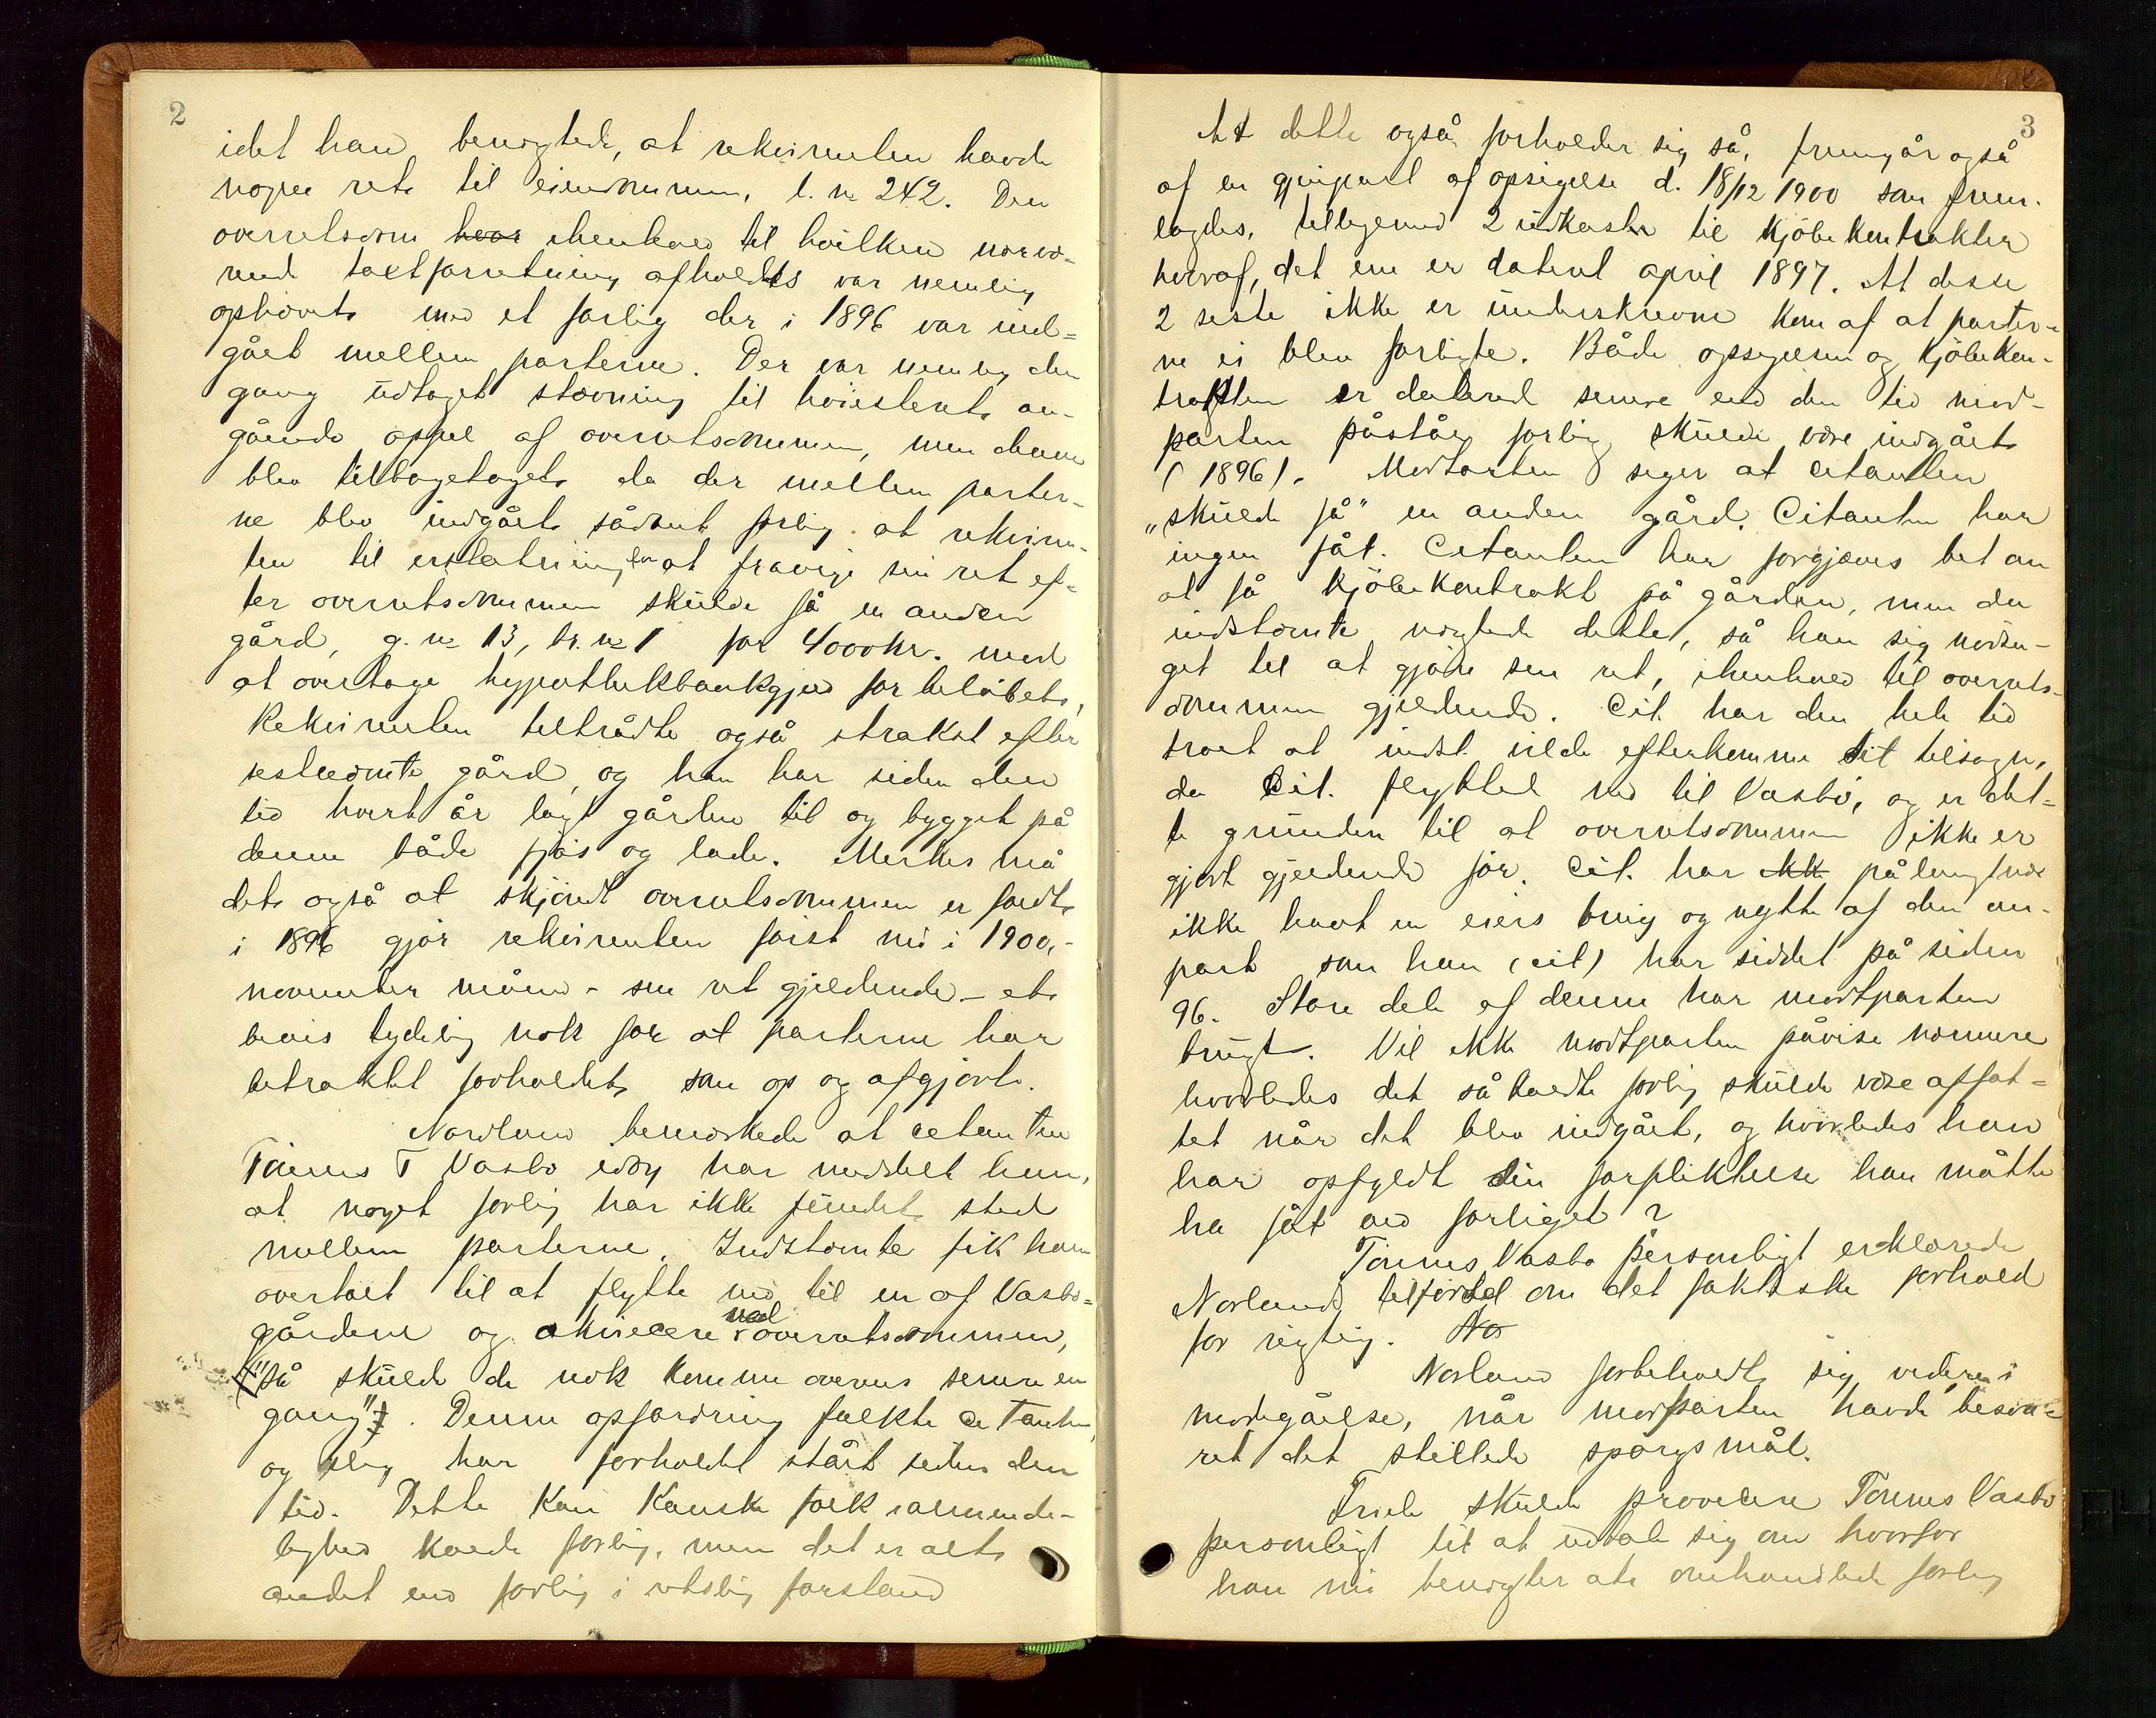 2
idet han benegtede, at rekvirenten havde
nogen ret til eiendommen, l. no 242. Den
overretsdom hvor ihenhold til hvilken nærvæ-
rend takstforretning afholdtes var nemlig
ophævet med et forlig der i 1896 var ind-
gået mellem parterne. Der var nemlig den
gang udtaget stævning til høiesteret an-
gående appel af overretsdommen, men denne
blev tilbagetaget da der mellem parter-
ne blev indgået sådant forlig at rekviren-
ten til erstatning for at fravige sin ret ef-
ter overretsdommen skulde få en anden
gård, g. no 13, br. no 1 for 4000 kr. mod
at overtage hypothekbankgjeld for beløbet,
Rekvirenten tiltrådte også strakst efter
sestnevnte gård, og han har siden den
tid hvert år lagt gården til og bygget på
denne både fjøs og lade. Merkes må
det også at skjøndt overretsdommen er fældt
i 1896 gjør rekvirenten først nu i 1900,-
november måned - sin ret gjeldende - et
bevis tydelig nok for at parterne har
betraktet forholdet som op og afgjort.
Norland bemerkede at citanten
Tønnes T Vasbø idag har meddelt ham,
at noget forlig har ikke fundet sted
mellem parterne. Indstevnte fik ham
overtalt til at flytte ned til en af Vasbø-
gårdene og akviecere ved overretsdommen,
"så skulde de nok komme overens senere en
gang". Denne opfordring fulgte citanten,
og slig har forholdet stået siden den
tid. Dette kan kanske folk i alminde-
lighed kalde forlig, men det er alt
andet end forlig i retslig forstand
3
At dette også forholder sig så, fremgår også
af en gjenpart af opsigelse d. 18/12 1900 som frem-
lagdes, tilligemed 2 udkaster til kjøbekontrakter
hvoraf, det ene er dateret april 1897. At disse
2 siste ikke er underskrevne kom af at parter-
ne ei blev forligte. Både opsigelsen og kjøbekon-
trakten er dateret senere end den tid mod-
parten påstår forlig skulde være indgået
(1896). Modparten siger at citanten
"skulde få" en anden gård. Citanten har
ingen fåt. Citanten har forgjæves bet om
at få kjøbekontrakt på gården, men da
indstevnte negtede dette, så han sig nødsa-
get til at gjøre sin ret, ihenhold til overrets-
dommen gjeldende. Cit. har den hele tid
troet at indst. vilde efterkomme sit tilsagn,
da Cit. flyttet ned til Vasbø, og er det-
te grunden til at overretsdommen ikke er
gjort gjeldende før. Cit. har ikk på langt nær
ikke havt en eiers brug og nytte af den an-
part som han (cit) har siddet på siden
96. Store dele af denne har modtparten
brugt. Vil ikke modtparten påvise nærmere
hvorledes det såkaldte forlig skulde være affat-
tet når det blev indgået, og hvorledes han
har opfyldt sin forpliktelse han måtte
ha fåt ved forliget?
Tønnes Vasbø personligt erklærede
Norlands tilførsel om det faktiske forhold
for rigtig. No
Norland forbeholdt sig videre i
mødegåelse, når modparten havde besva-
ret det stillede spørgsmål.
skulde provocere Tønnes Vasbø
personligt til at udtale sig om hvorfor
han nu benegter at omhandlede forlig